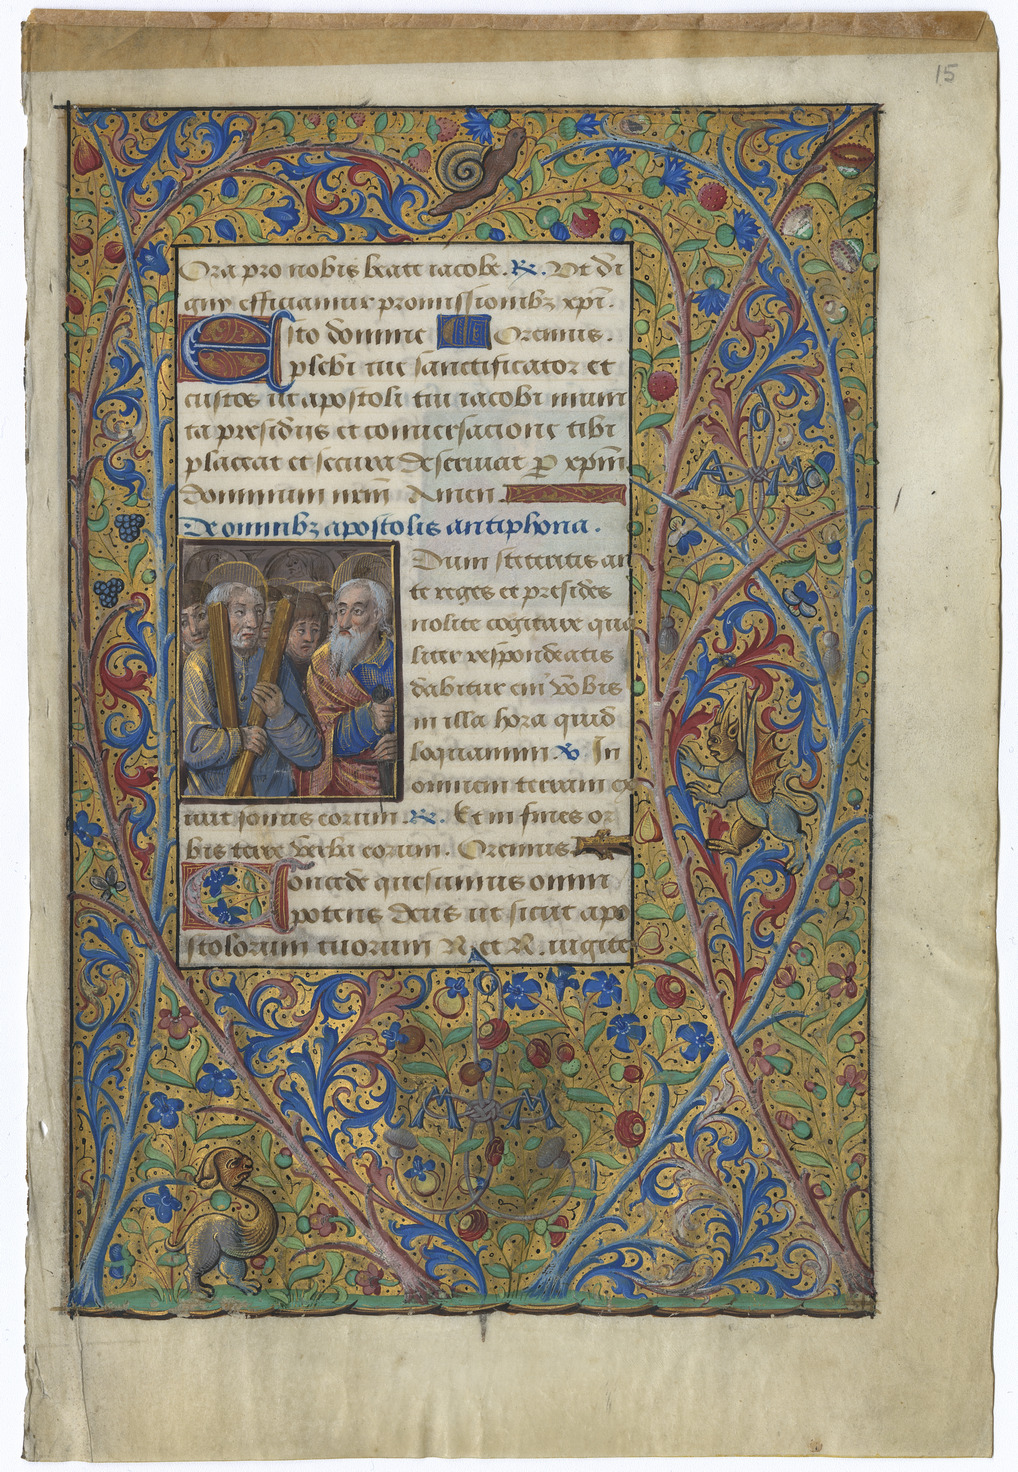 15
Ora pro nobis beate iacobe. ℟. Vt di
gny efficiamur promissionibꝫ xp̄i.
Esto domine Oremus.
plebi tue sanctificator et
custos ut apostoli tui iacobi muni
ta presidiis et conuersacione tibi
placeat et secura deseruiat ꝑ xp̄m
dominum nr̄m Amen.
De omnibꝫ apostolis antiphona.
Dum steteritis an
te reges et presides
nolite cogitare qua
liter respondeatis
dabitur eni vobis
in illa hora quid
loquamini ℣. In
omnem terram ex
iuit sonus eorum. ℟. Et in fines or
bis terre verba eorum. Oremus
Concede quesumus omni
potens deus ut sicut apo
stolorum tuorum N. et N. iugite
A M
M M